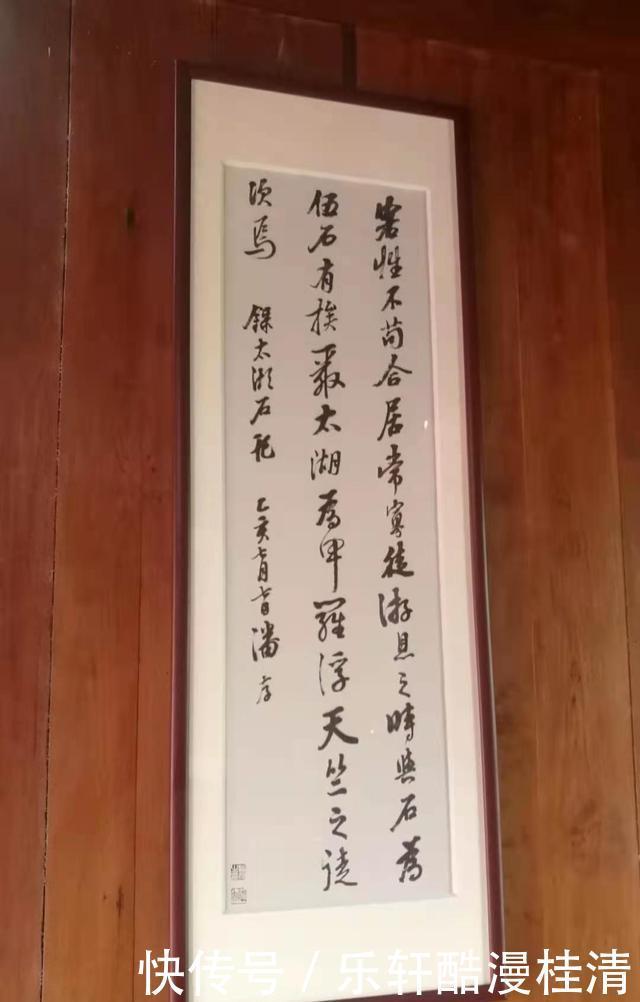 客性不苟合居常寡徒游息之時與石為
伍石有族聚太湖為甲羅浮天竺之徒
次焉 錄太湖石記 乙亥七月七日潘存
快传号 / 乐轩酷漫桂清